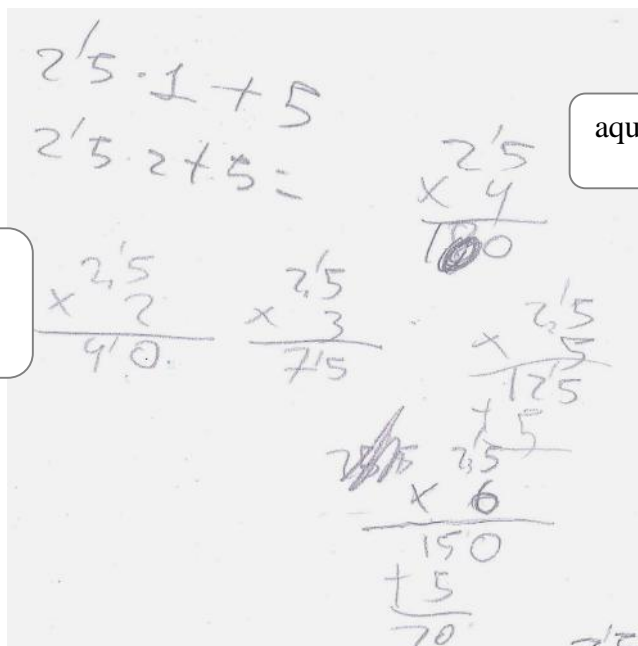 2'5 · 1 + 5
2'5 · 2 + 5 =
aqu
2'5
x 4
10
2'5
x 2
4'0.
2'5
x 3
7'5
2'5
x 5
12'5
+ 5
2'5
x 6
150
+ 5
20
2'5